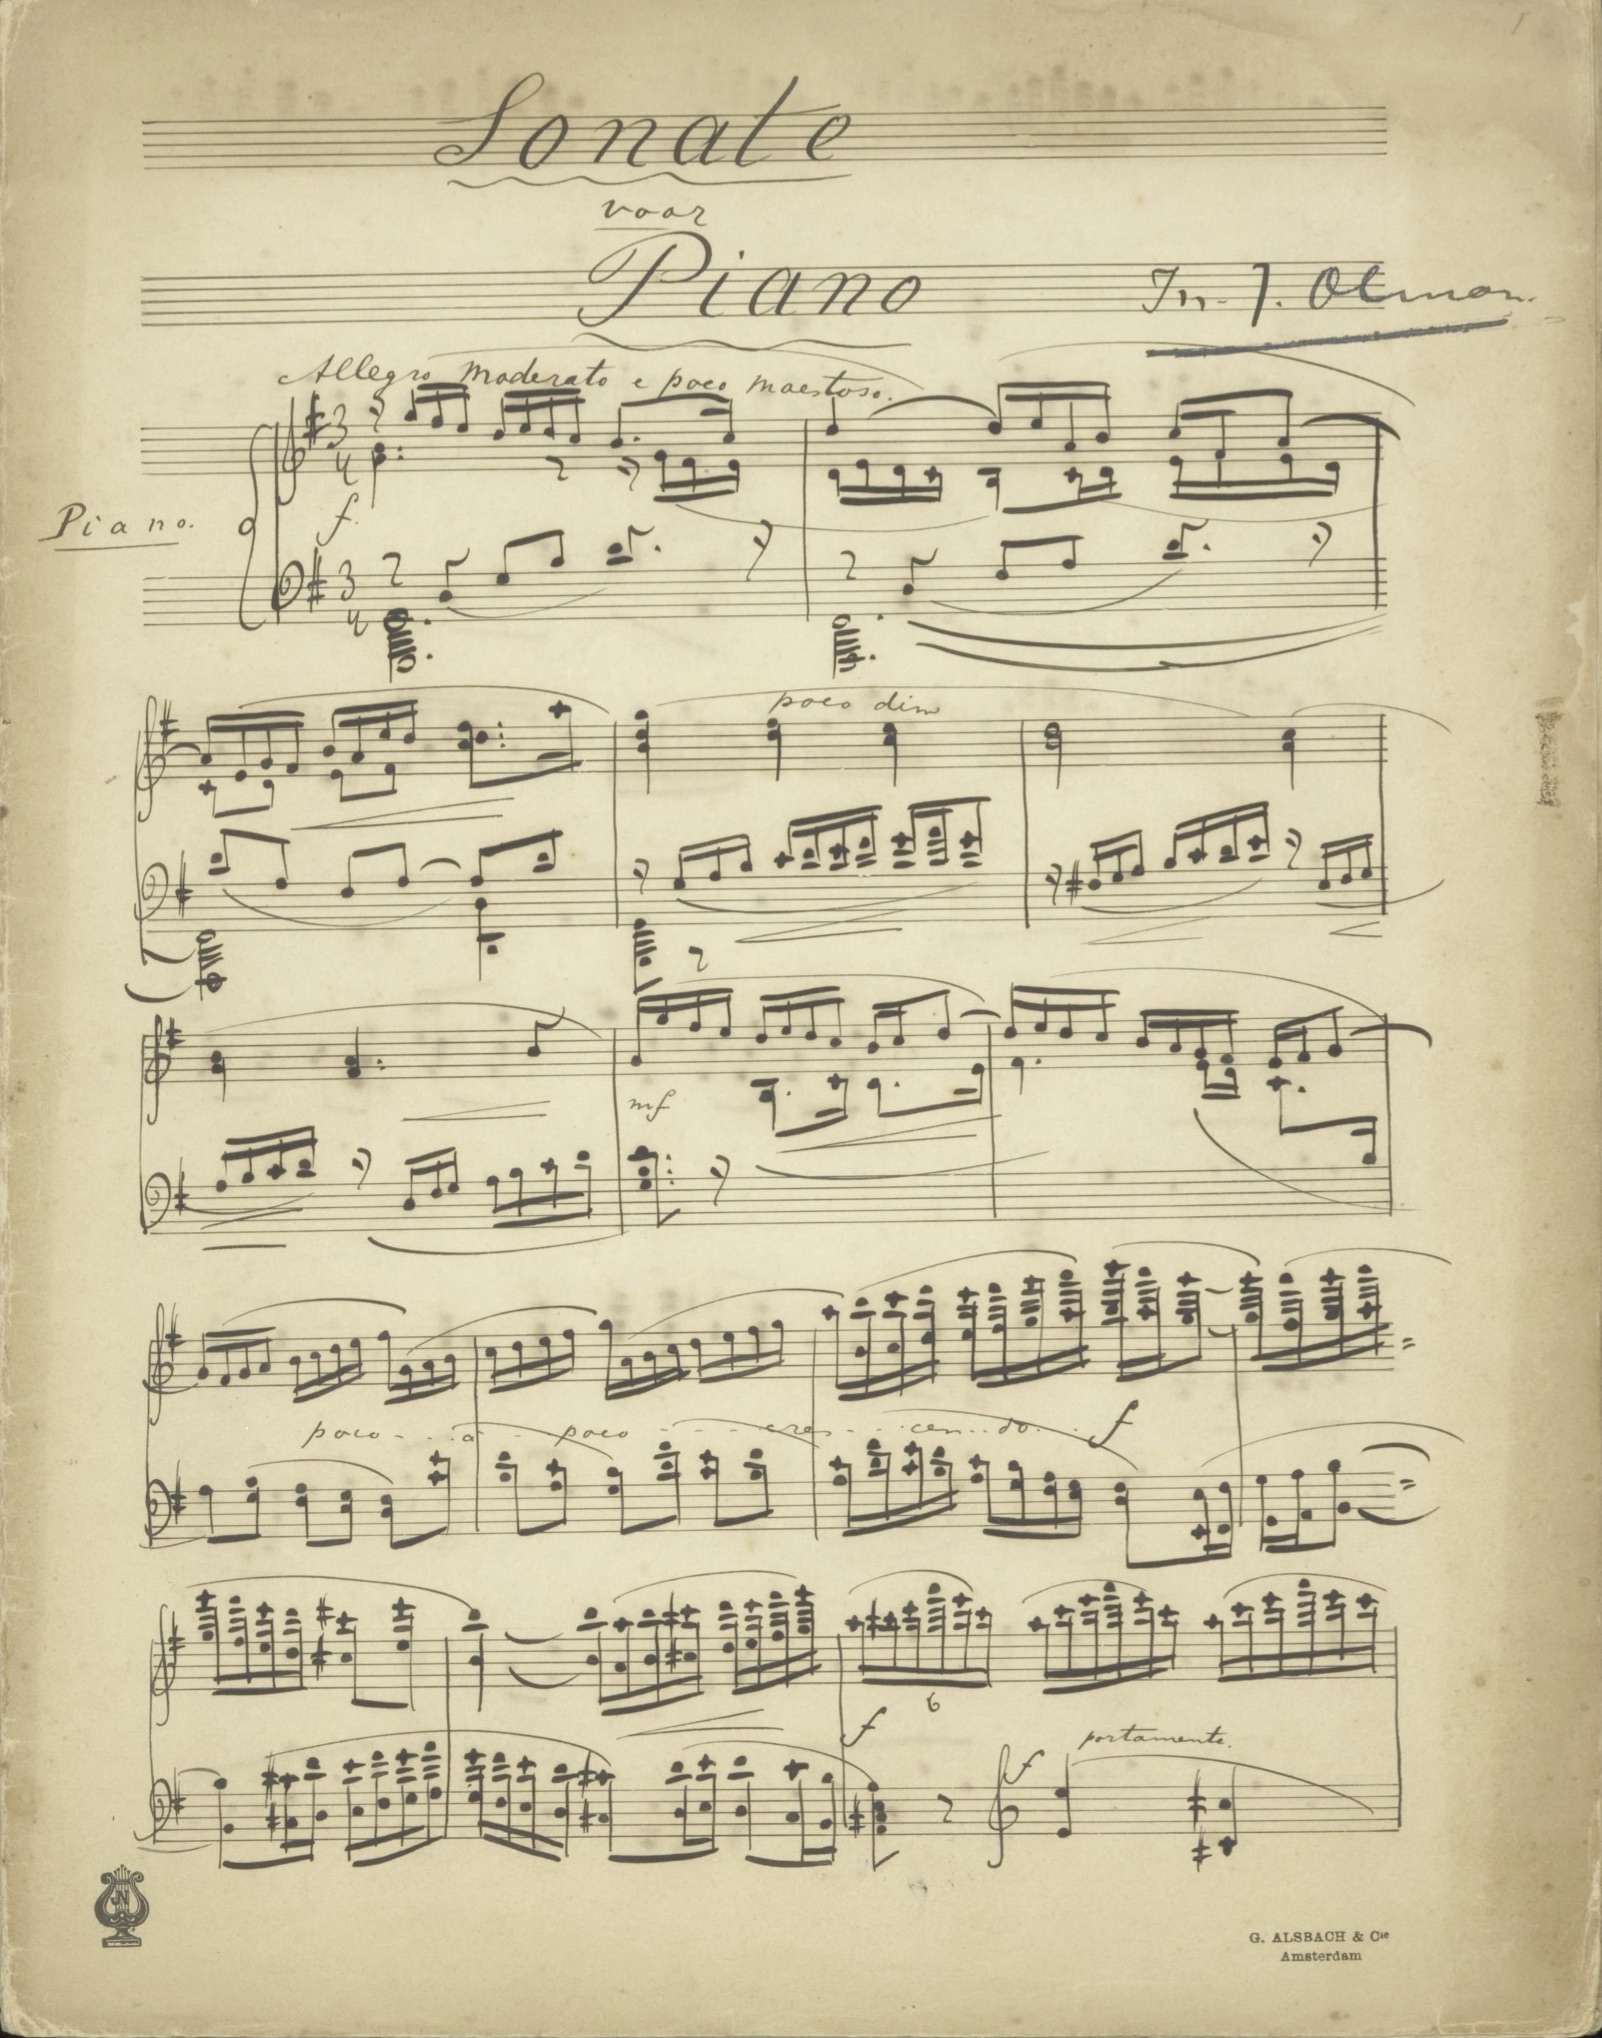 Sonate
voor
Piano
Allegro moderato e poco maestoso.
3
4
Piano.
f.
3
4
poco dim
mf
poco - - - a - - poco - - - - cres - - - cen - - do - - f
6
f
f portamente.
JN
G. ALSBACH & Cie
Amsterdam